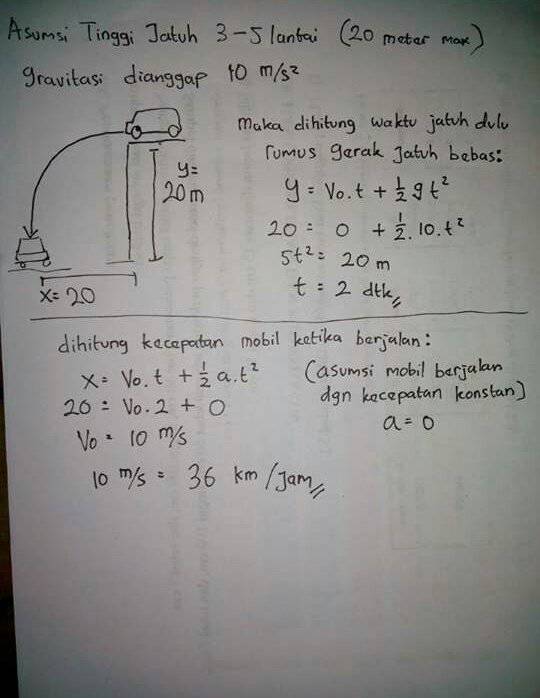 Asumsi Tinggi Jatuh 3-5 lantai (20 meter max)
gravitasi dianggap 10 m/s²
y=
20 m
x= 20
Maka dihitung waktu jatuh dulu
rumus gerak jatuh bebas:
y = Vo.t + 1/2 g t²
20 = 0 + 1/2. 10. t²
5t² = 20 m
t = 2 dtk
dihitung kecepatan mobil ketika berjalan:
x = Vo.t + 1/2 a.t²
20 = Vo.2 + 0
Vo = 10 m/s
10 m/s = 36 km/Jam
(asumsi mobil berjalan
dgn kecepatan konstan)
a = 0